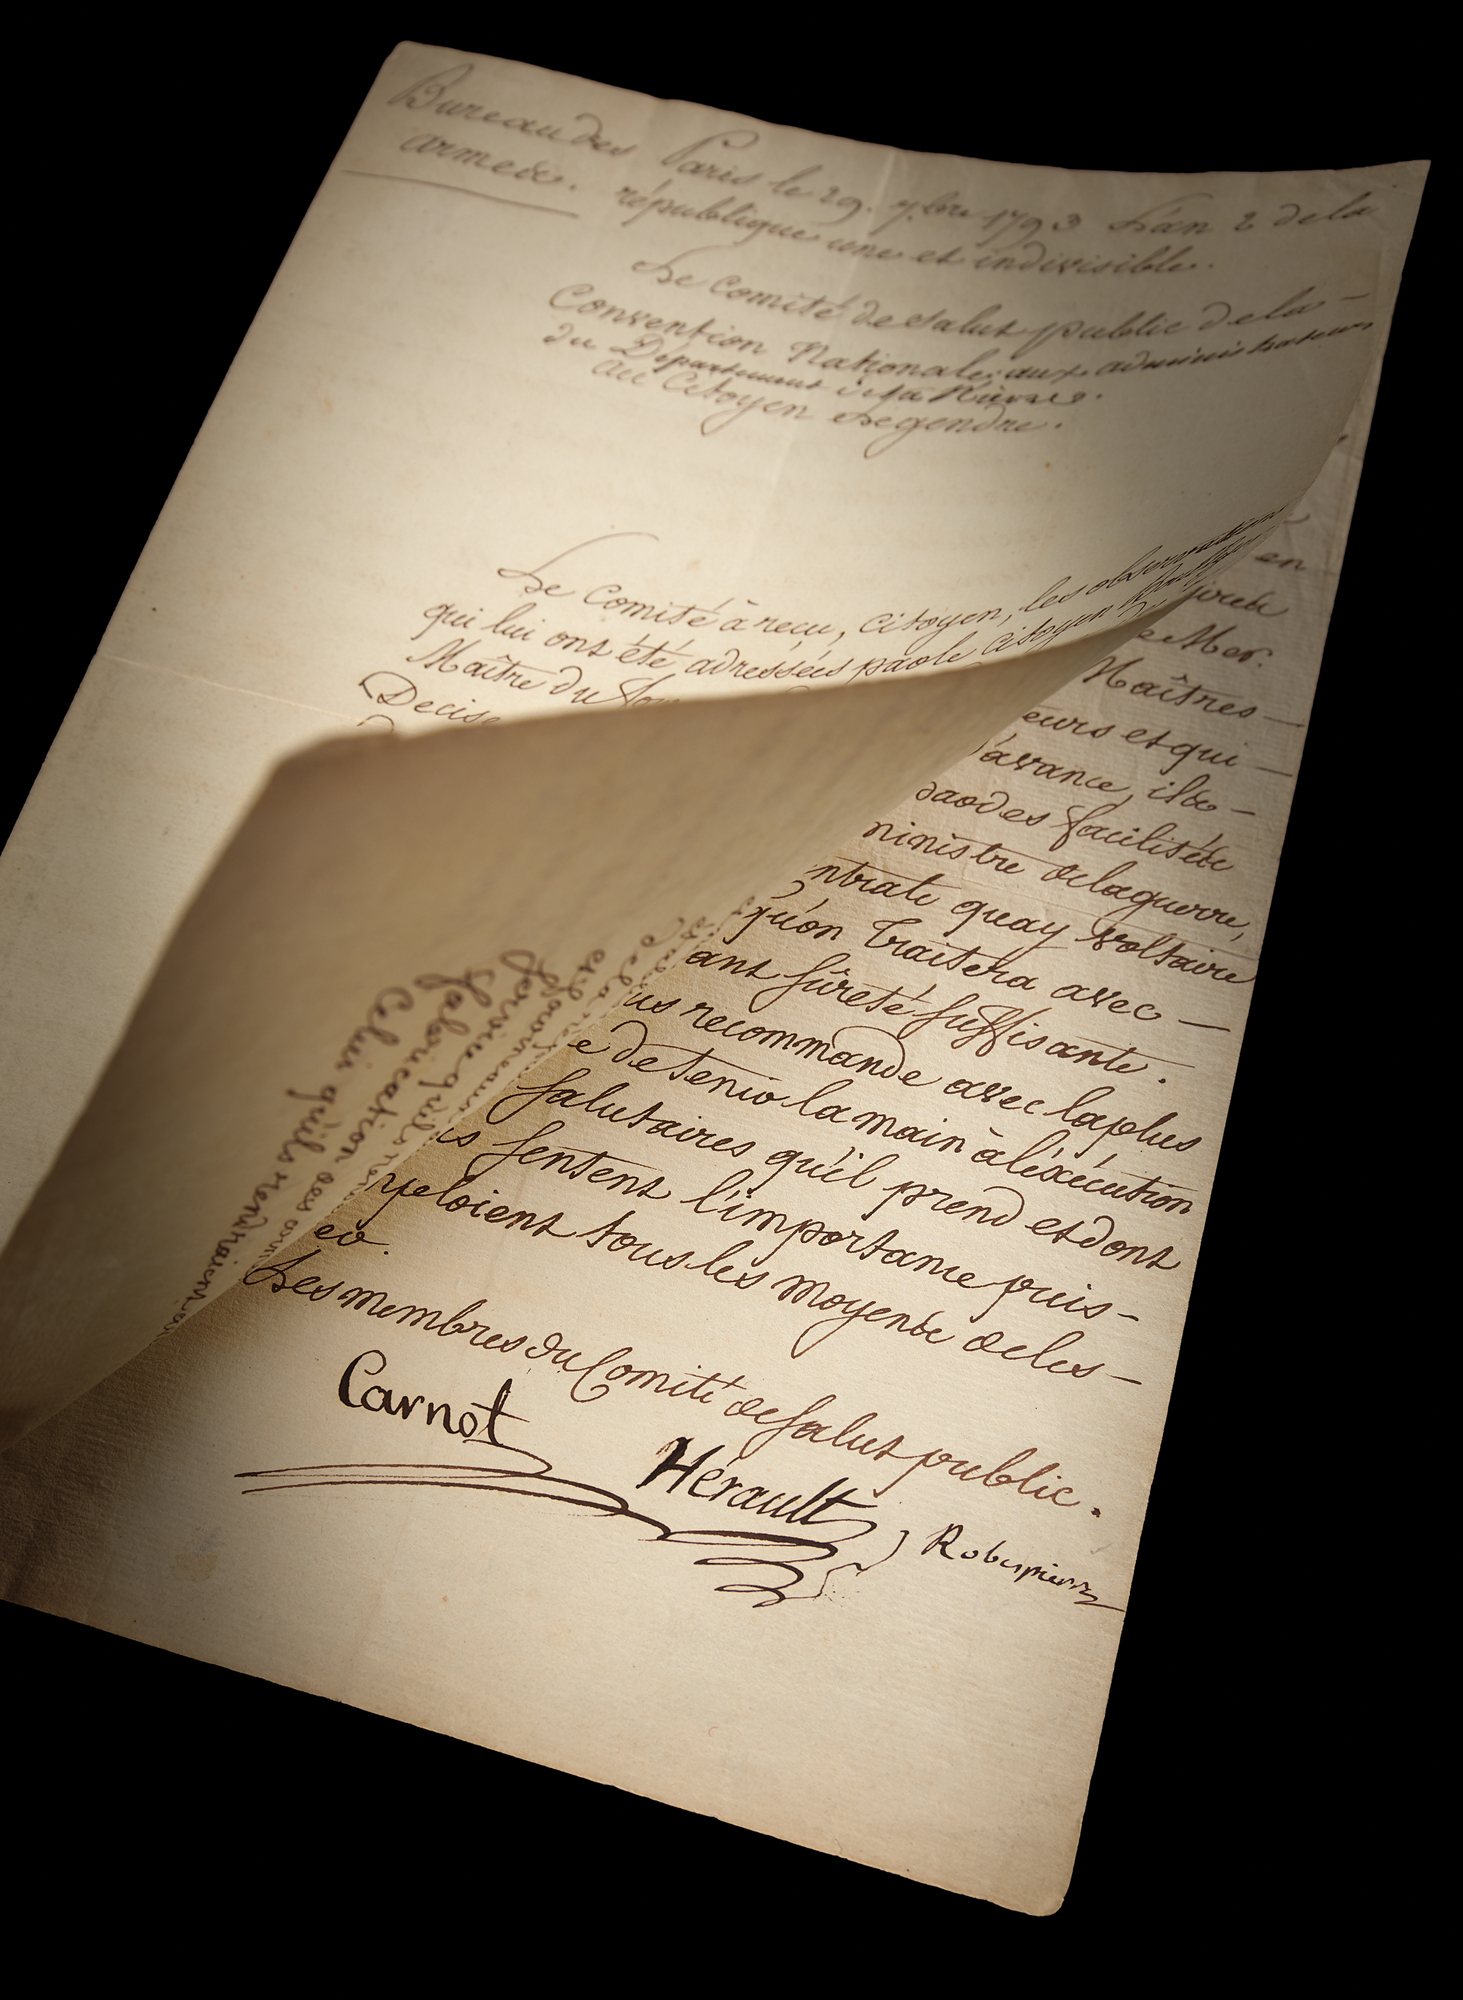 Bureau des
armées.
Paris le 29. 7.bre 1793 L'an 2 de la
république une et indivisible.
Le Comité de Salut public de la
Convention Nationale, aux administrateurs
du Département de la Nièvre.
au Citoyen Legendre.
Le Comité à reçu, Citoyen, les observations
qui lui ont été adressées par le Citoyen
Maître du
Decise
en
de Mer.
Maîtres
eurs et qui
d'avance, il
par des facilités
ministre de la guerre,
ntrale quay voltaire
qu'on traitera avec
ant sûreté suffisante.
us recommande avec la plus
e de tenir la main à l'éxécution
salutaires qu'il prend et dont
is sentent l'importance puis
ployent tous les moyens de les
er.
Les membres du Comité de Salut public.
Carnot
Hérault
Robespierre
de la
et fourneaux
servir qu'ils
fabrication des
Celui qu'ils